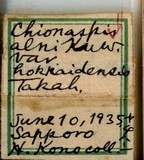 Chionaspis
alni Kuw.
var.
hokkaidensis
Takah.
June 10, 1935
Sapporo
H. Kono coll